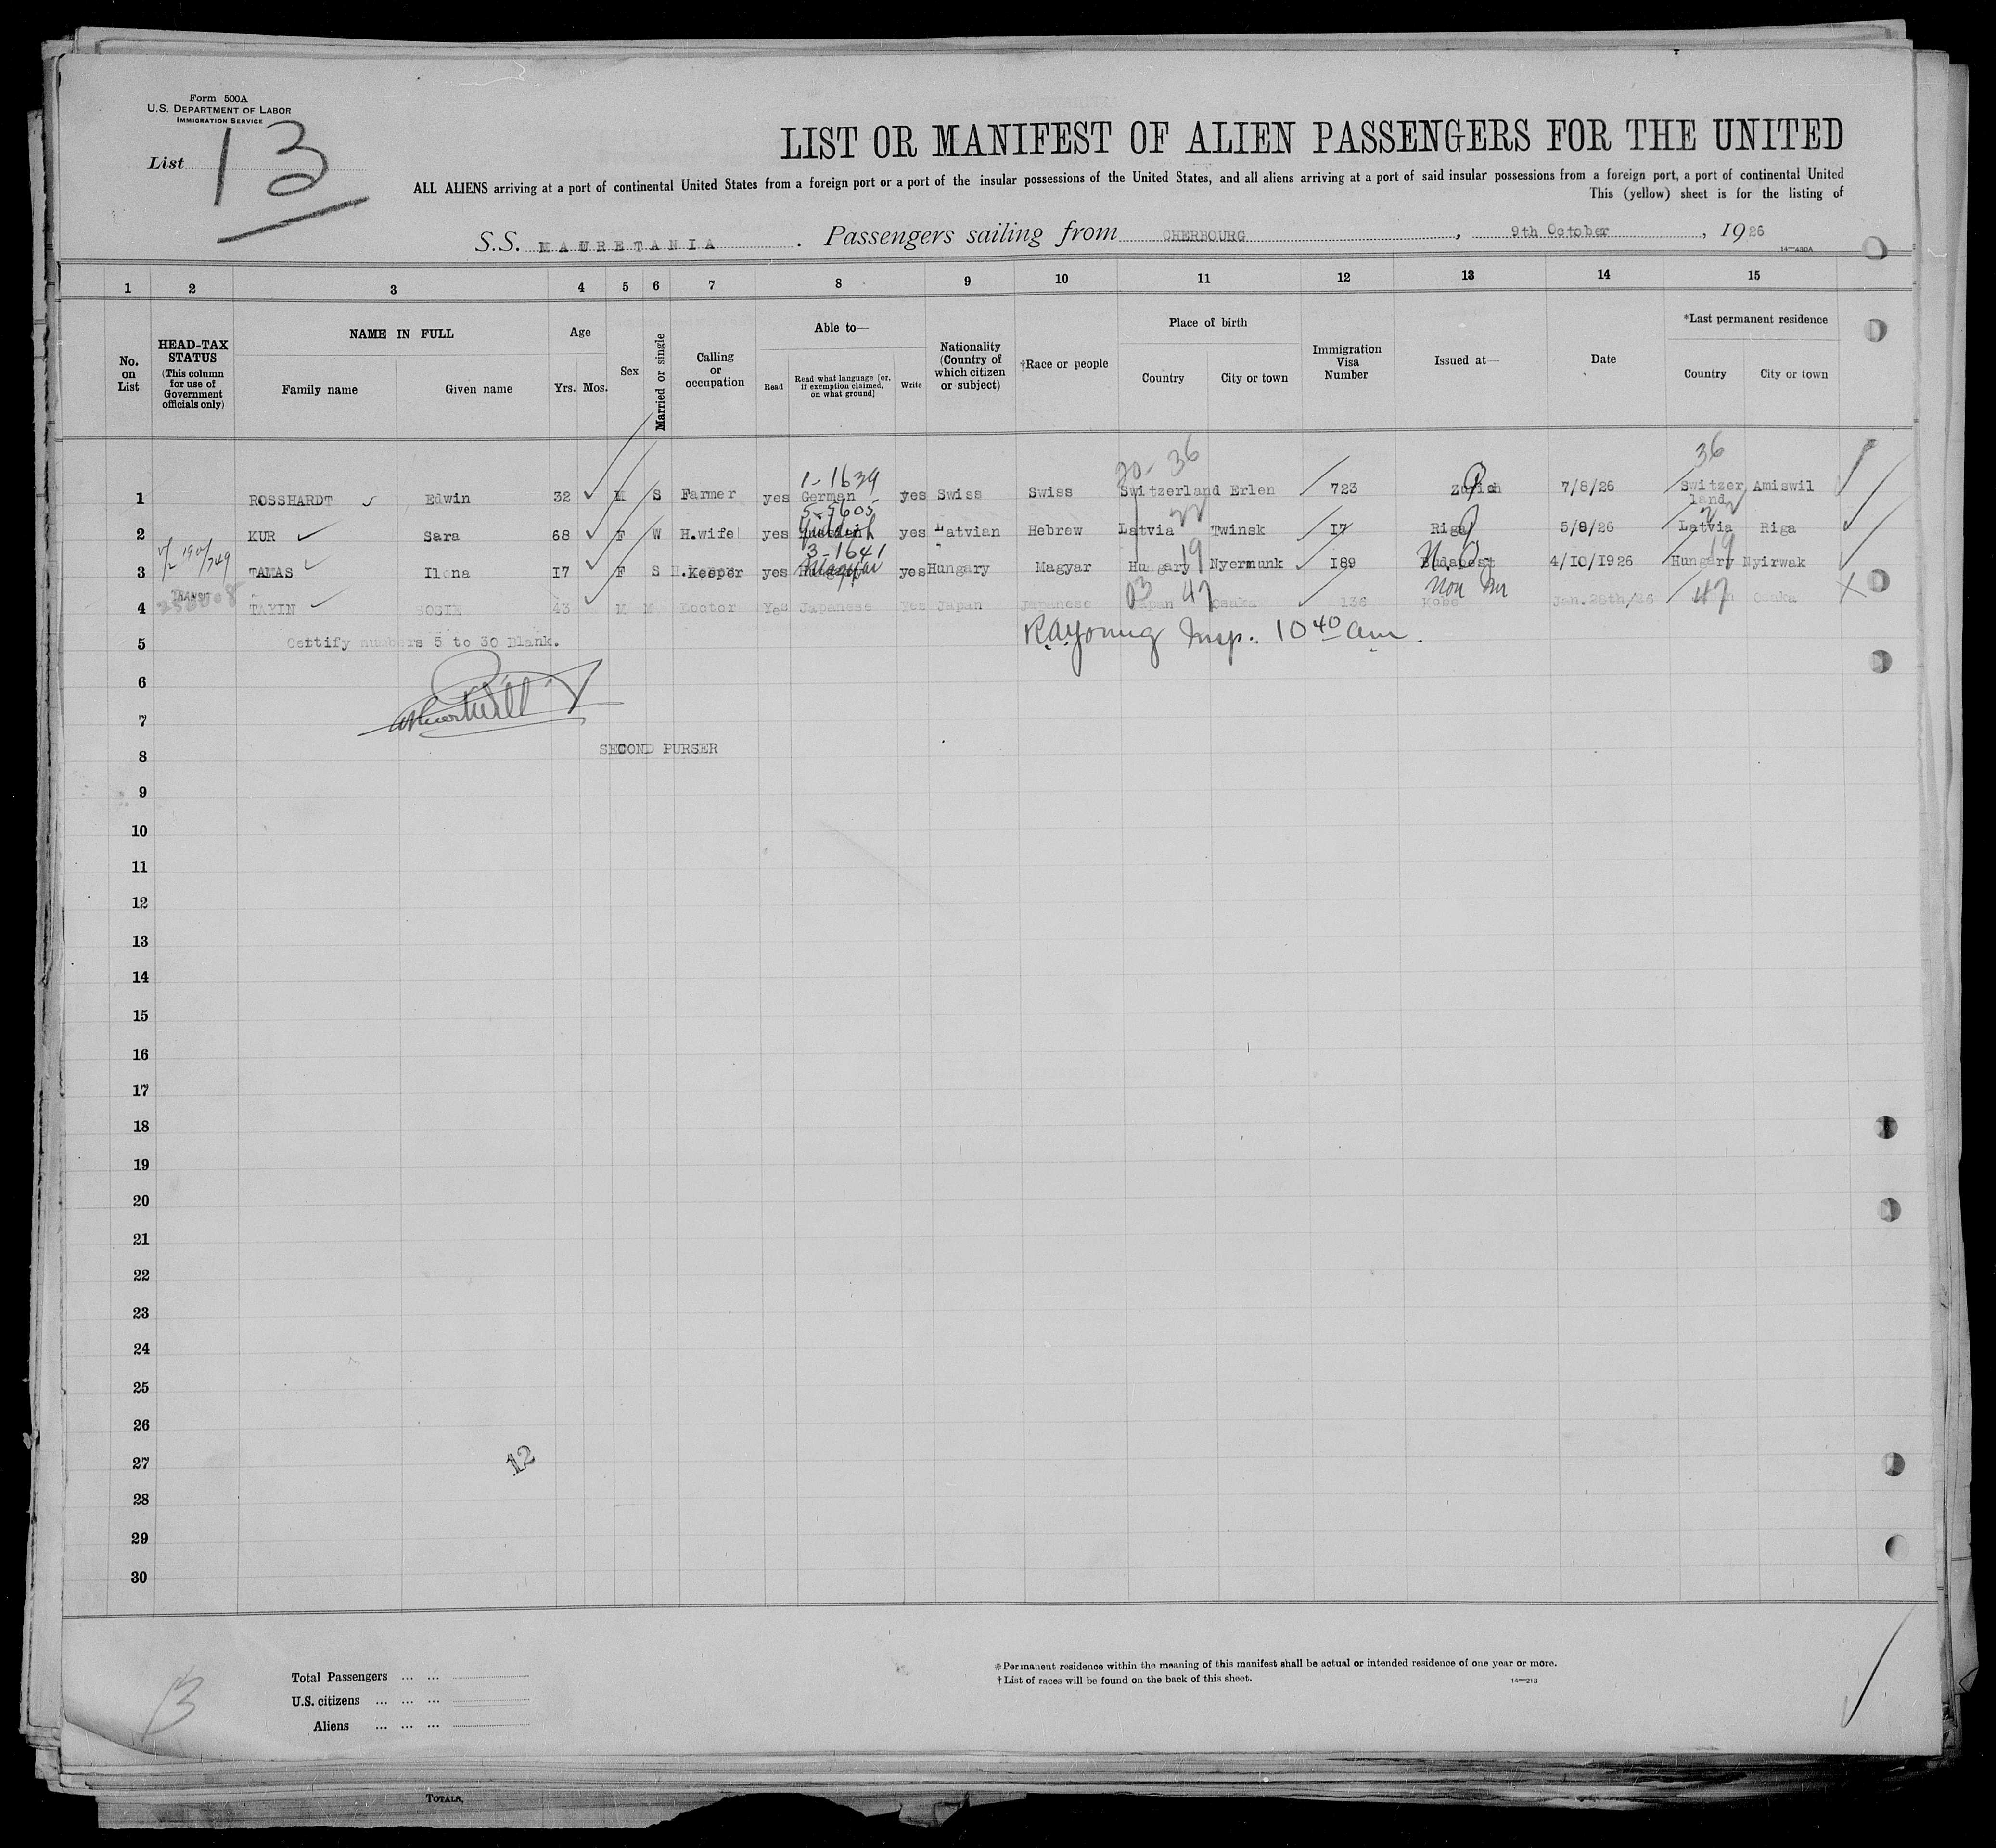 Form 500A
U.S. DEPARTMENT OF LABOR
IMMIGRATION SERVICE
List 13
LIST OR MANIFEST OF ALIEN PASSENGERS FOR THE UNITED
ALL ALIENS arriving at a port of continental United States from a foreign port or a port of the insular possessions of the United States, and all aliens arriving at a port of said insular possessions from a foreign port, a port of continental United
This (yellow) sheet is for the listing of
S.S. MAURETANIA. Passengers sailing from CHERBOURG, 9th October, 1926
14—430A
1 2 3 4 5 6 7 8 9 10 11 12 13 14 15
No. on List
HEAD-TAX STATUS (This column for use of Government officials only)
NAME IN FULL
Family name Given name
Age
Yrs. Mos.
Sex
Married or single
Calling or occupation
Able to—
Read Read what language [or, if exemption claimed, on what ground] Write
Nationality (Country of which citizen or subject)
†Race or people
Place of birth
Country City or town
Immigration Visa Number
Issued at—
Date
*Last permanent residence
Country City or town
20- 36 36
1-1639
1 ROSSHARDT Edwin 32 M S Farmer yes German yes Swiss Swiss Switzerland Erlen 723 Zurich 7/8/26 Switzer land Amiswil
5-5605 22 22
2 KUR Sara 68 F W H.wife yes Yiddish yes Latvian Hebrew Latvia Twinsk I7 Riga 5/8/26 Latvia Riga
3-1641 19 19
3 TAMAS Ilona I7 F S H.Keeper yes Magyar yes Hungary Magyar Hungary Nyermunk I89 Budapest 4/10/1926 Hungary Nyirwak
TRANSIT
4 43 M M Doctor Yes Japanese Yes Japan Japanese Japan 47 Osaka 136 Kobe Jan.28th/26 47 Osaka
5 Certify numbers 5 to 30 Blank. Insp. 10 40 am.
6
7
SECOND PURSER
8
9
10
11
12
13
14
15
16
17
18
19
20
21
22
23
24
25
26
27 12
28
29
30
13
Total Passengers ... ...
U.S. citizens ... ... ...
Aliens ... ... ...
*Permanent residence within the meaning of this manifest shall be actual or intended residence of one year or more.
†List of races will be found on the back of this sheet.
14—213
TOTALS,